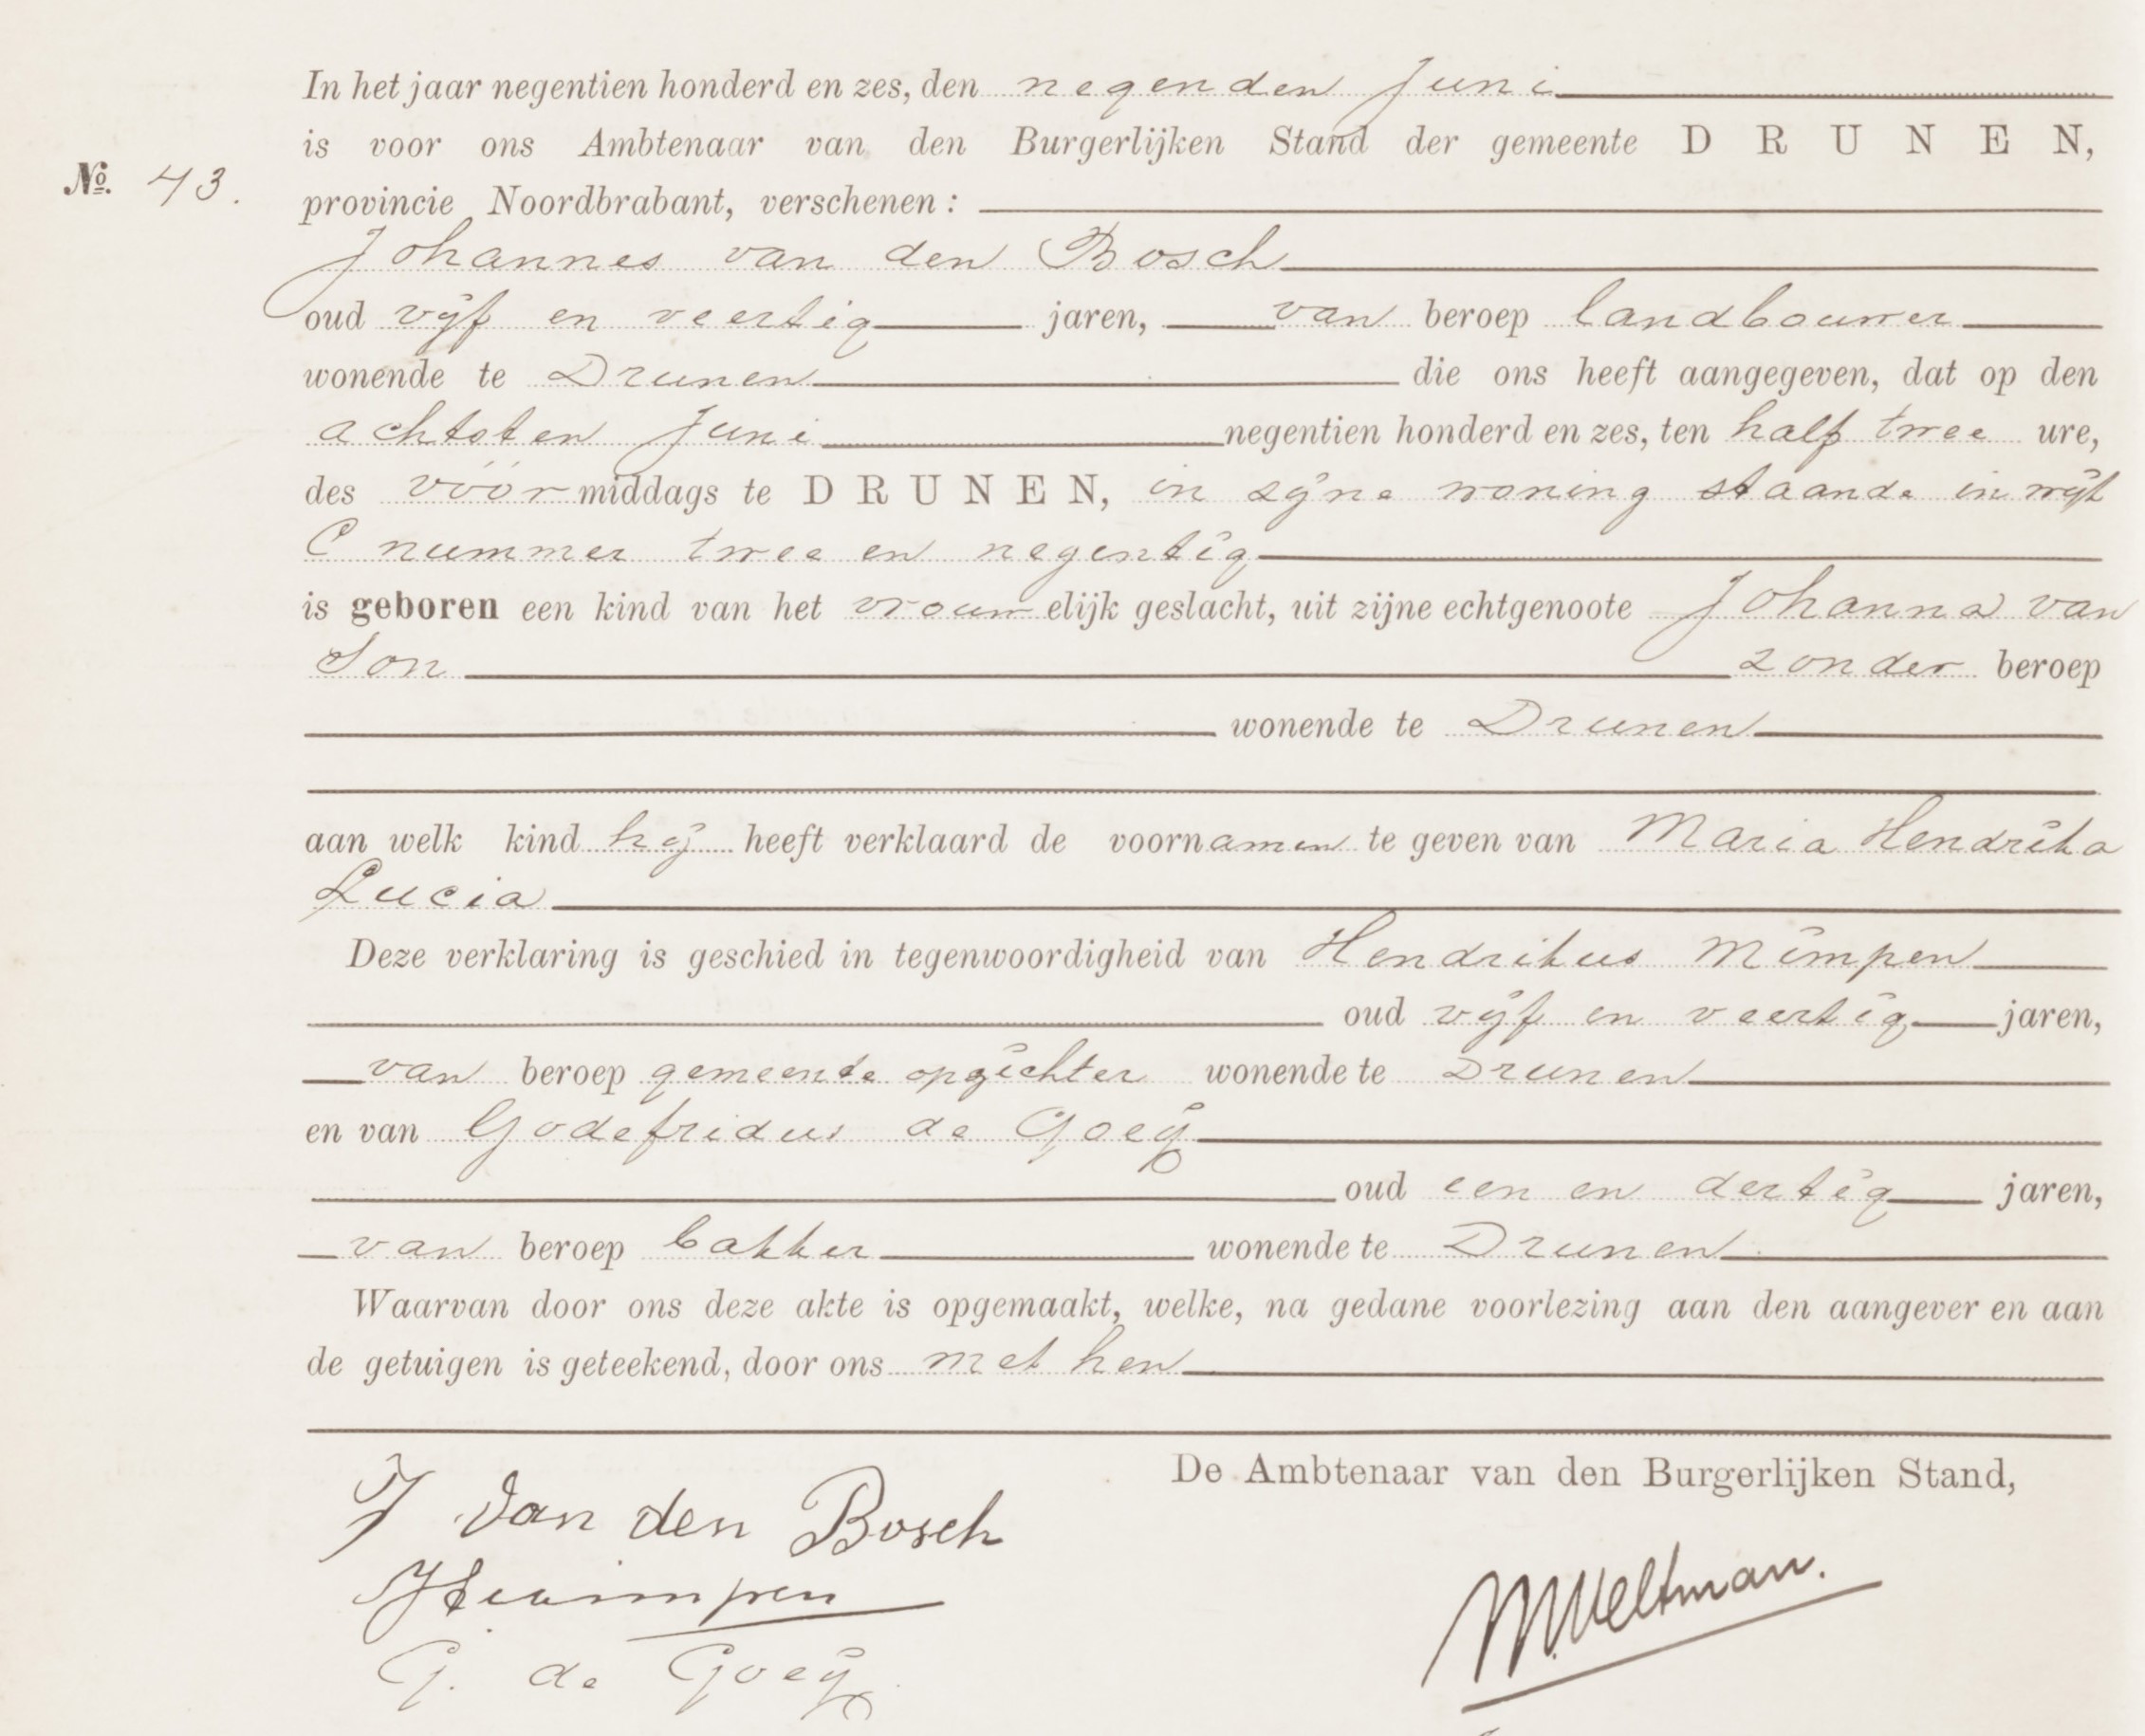 In het jaar negentien honderd en zes, den negenden Juni
is voor ons Ambtenaar van den Burgerlijken Stand der gemeente DRUNEN,
No. 43.
provincie Noordbrabant, verschenen:
Johannes van den Bosch
oud vijf en veertig jaren, van beroep landbouwer
wonende te Drunen die ons heeft aangegeven, dat op den
achtsten Juni negentien honderd en zes, ten half twee ure,
des vóórmiddags te DRUNEN, in zijne woning staande in wijk
C nummer twee en negentig
is geboren een kind van het vrouwelijk geslacht, uit zijne echtgenoote Johanna van
Son zonder beroep
wonende te Drunen
aan welk kind hij heeft verklaard de voornamen te geven van Maria Hendrika
Lucia
Deze verklaring is geschied in tegenwoordigheid van Hendrikus Mimpen
oud vijf en veertig jaren,
van beroep gemeente opzichter wonende te Drunen
en van Godefridus de Goeij
oud een en dertig jaren,
van beroep bakker wonende te Drunen
Waarvan door ons deze akte is opgemaakt, welke, na gedane voorlezing aan den aangever en aan
de getuigen is geteekend, door ons met hen
De Ambtenaar van den Burgerlijken Stand,
J van den Bosch
HMimpen
G. de Goeij
M.Weltman.